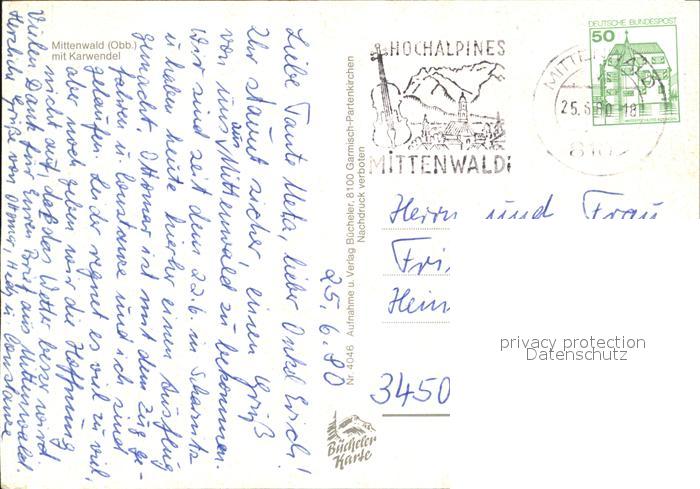 Mittenwald (Obb.)
mit Karwendel
25.6.80
Liebe Tante Meta, lieber Onkel Erich!
Ihr staunt sicher einen Gruß
von uns aus Mittenwald zu bekommen.
Wir sind seit dem 22.6. in Scharnitz
u. haben heute hierher einen Ausflug
gemacht. Ottomar ist mit dem Zug ge-
fahren u. Constanze und ich sind
gelaufen. Leider regnet es viel zu viel,
aber noch geben wir die Hoffnung
nicht auf, daß das Wetter besser wird.
Vielen Dank für Euren Brief aus Mittenwald.
Herzliche Grüße von Ottomar, u. Constanze
Nr. 4046 Aufnahme u. Verlag Bücheler, 8100 Garmisch-Partenkirchen
Nachdruck verboten
Bücheler
Karte
HOCHALPINES
MITTENWALD
DEUTSCHE BUNDESPOST
50
25.6.80-18
Herrn und Frau
Fri
Hein
3450
privacy protection
Datenschutz